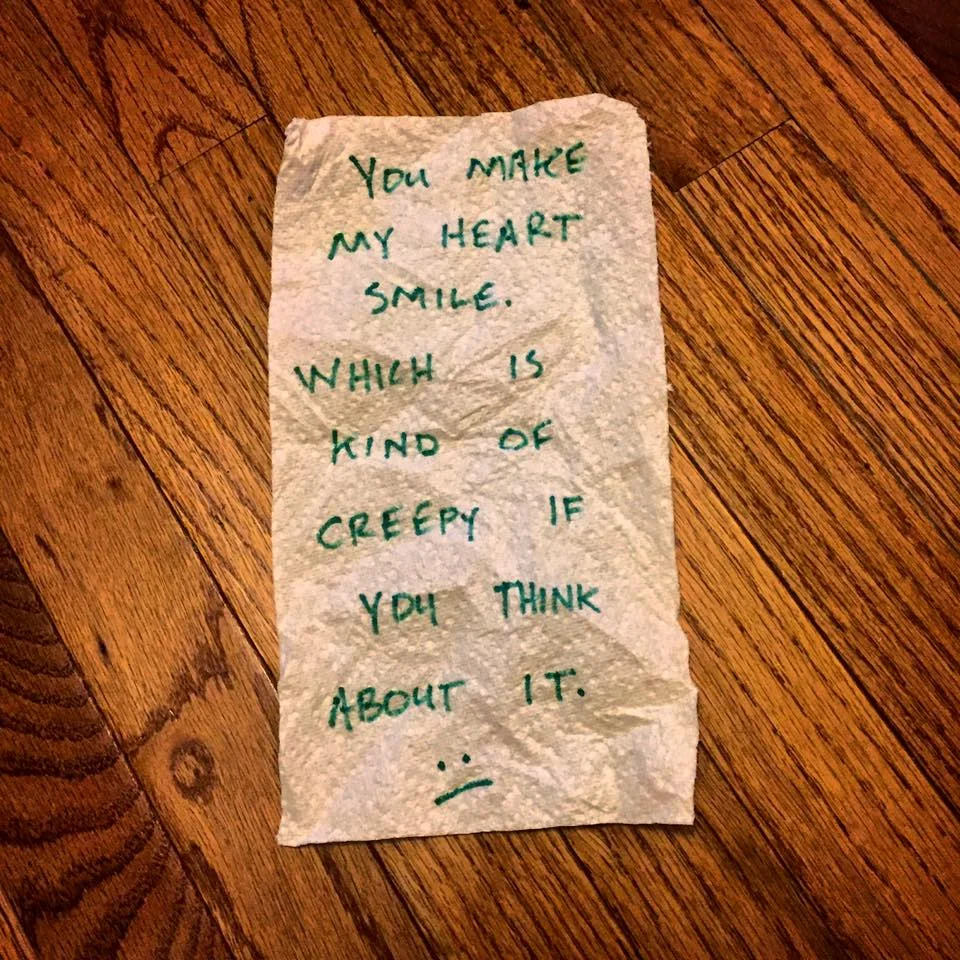 YOU MAKE
MY HEART
SMILE.
WHICH IS
KIND OF
CREEPY IF
YOU THINK
ABOUT IT.